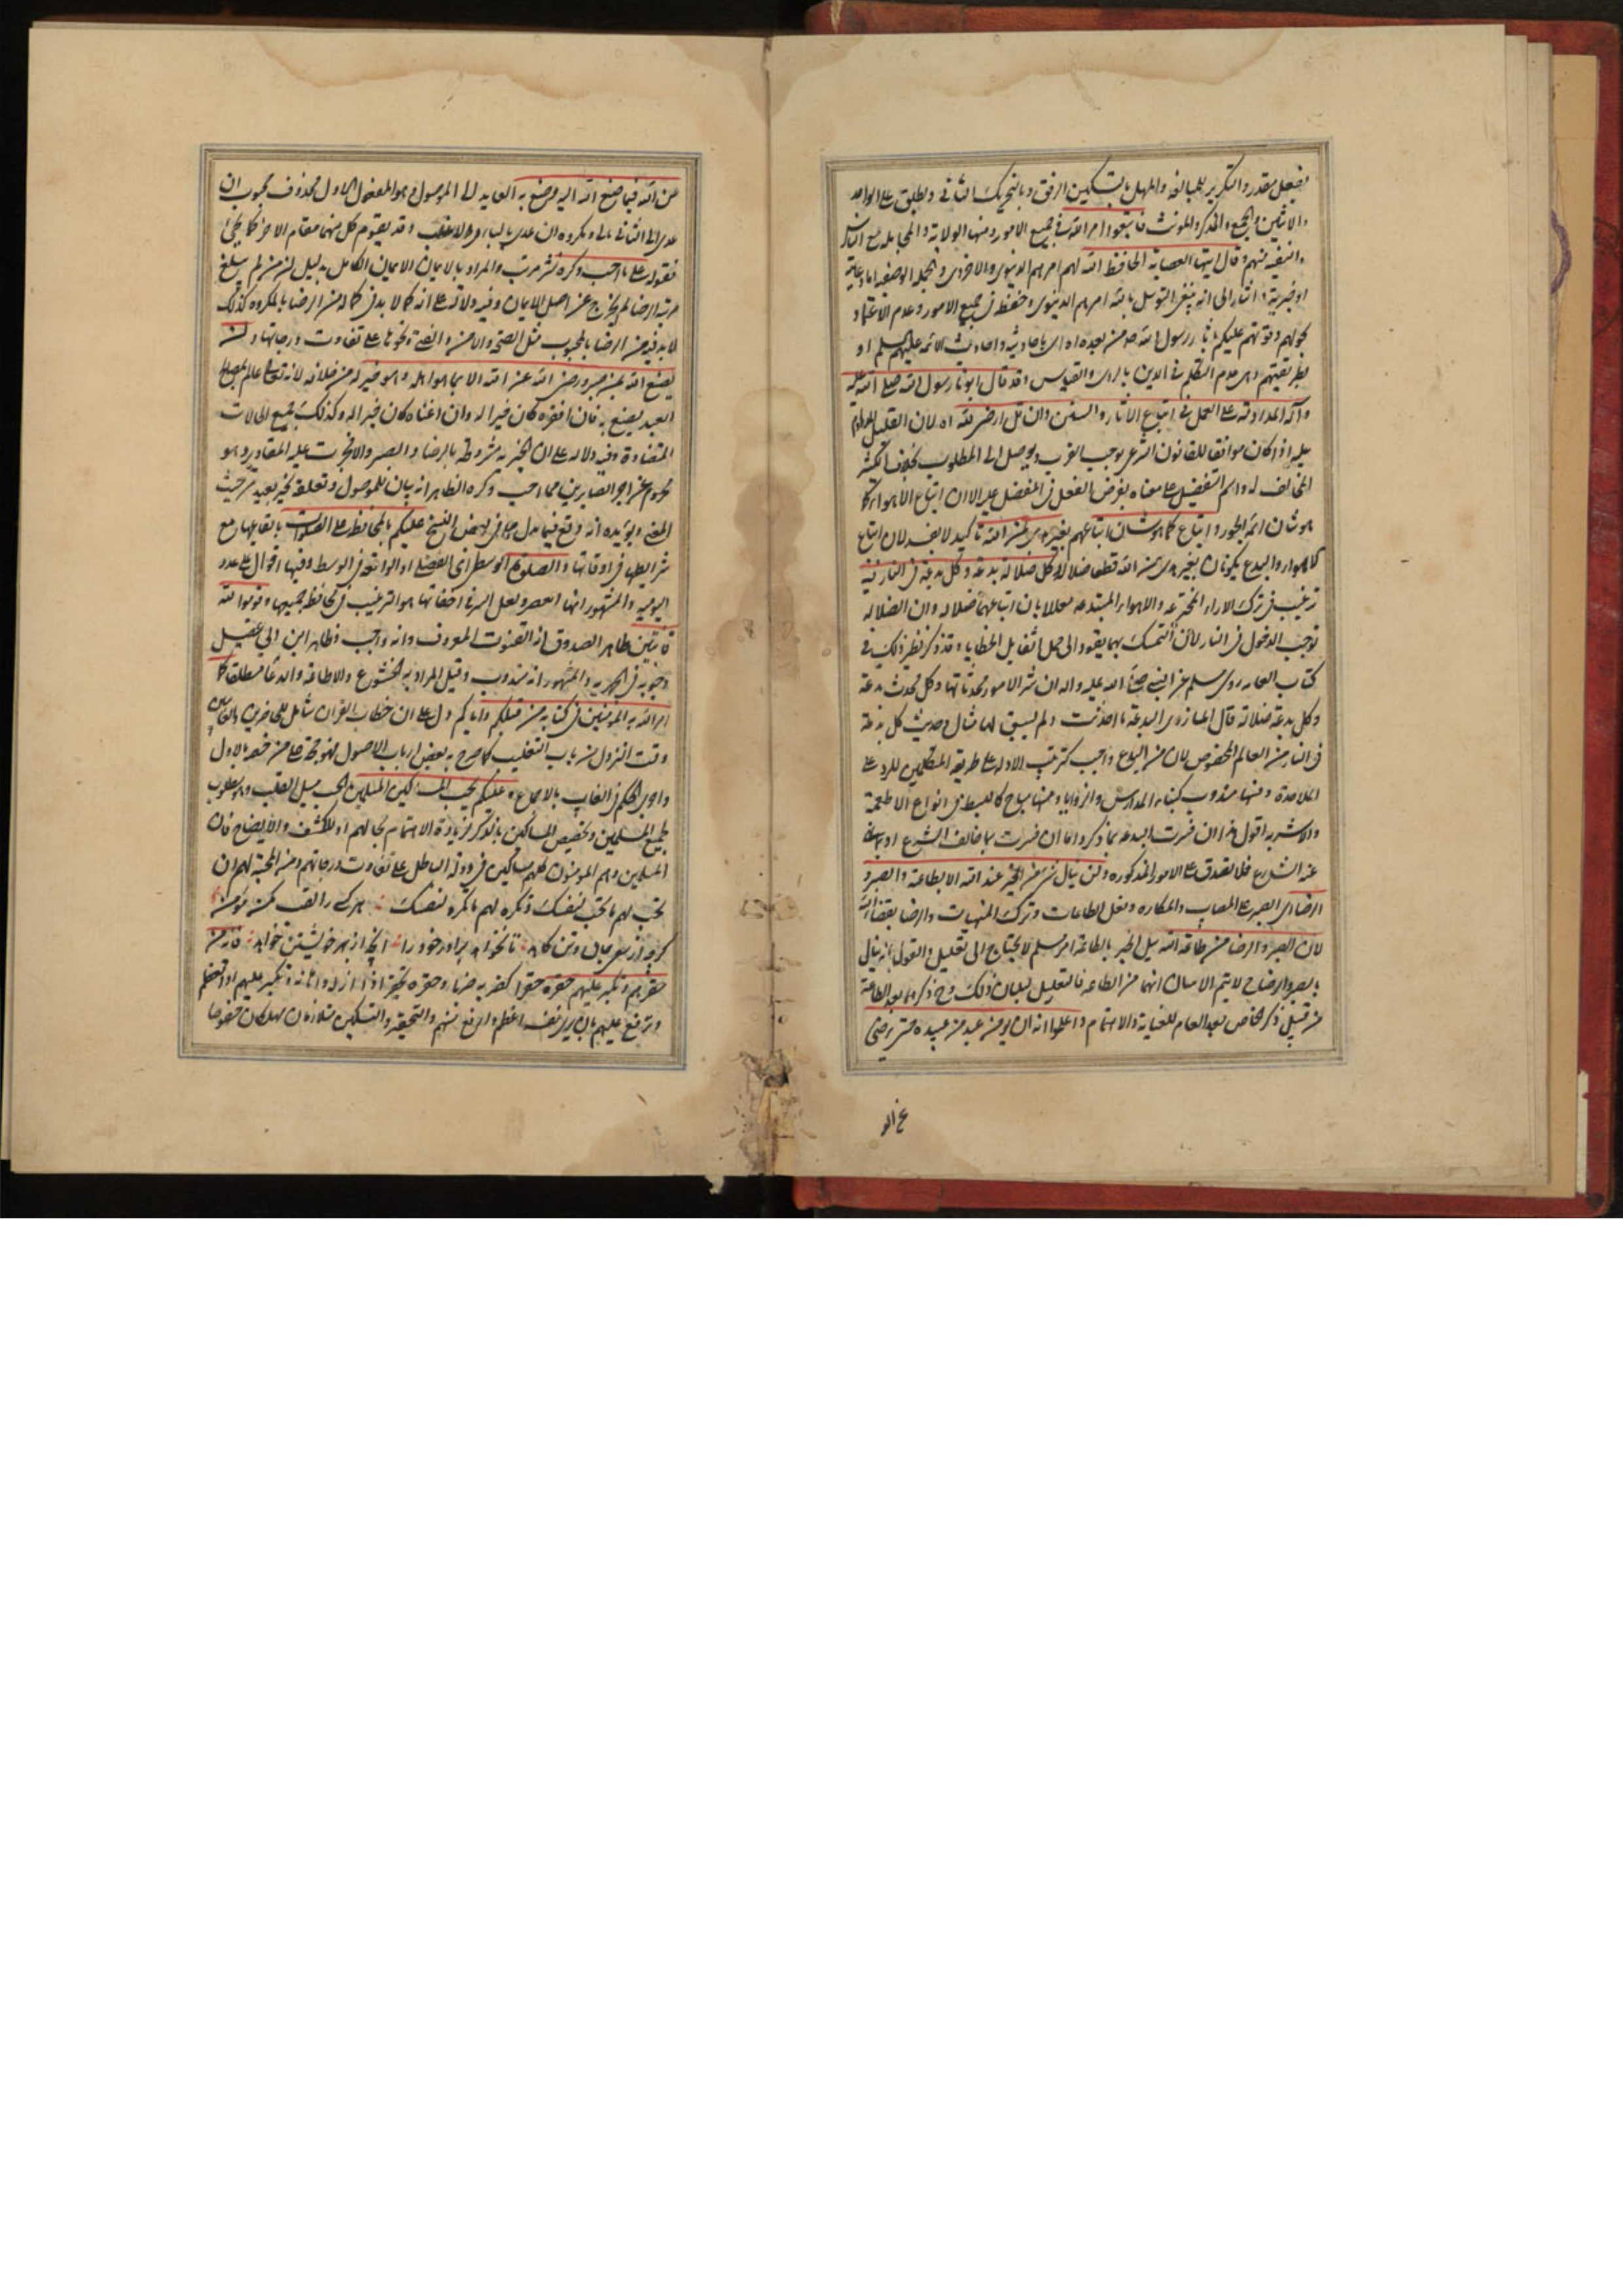 بفعل مقدر والتكرير للمبالغة والمهل بالتسكين الرفق وبالتحريك التأني ويطلق على الواحد
والاثنين والجمع والمذكر والمونث فاتبعوا امر الله في جميع الامور ومنها الولاية والمجاملة مع الناس
والتقية منهم وقال ايتها العصابة الحافظ الله لهم امرهم الدنيوي والاخروي والجملة الوصفية اما دعائية
او خبرية اشار الى انه ينبغي التوسل بالله امرهم الدنيوي وحفظه في جميع الامور وعدم الاعتماد
بحولهم وقوتهم عليكم بآثار رسول الله صه من بعده اه اى باحاديثه واحاديث الائمة عليهم السلم او
بطريقتهم وهى عدم التكلم في الدين بالراى والقياس وقد قال ابونا رسول الله صلى الله عليه
وآله المداومة على العمل في اتباع الآثار والسنن وان قل ارضى لله اه لان القليل المداوم
عليه اذا كان موافقا للقانون الشرعى يوجب القرب ويوصل الى المطلوب بخلاف الكثير
المخالف له واسم التفضيل على معناه بفرض الفعل في المفضل عليه الا ان اتباع الاهواء كما
هو شان ائمة الجور واتباع كما هو شان اتباعهم بغير هدى من الله تاكيد لا يفيد لان اتباع
الاهواء والبدع يكونان بغير هدى من الله قطعا ضلال وكل ضلالة بدعة وكل بدعة في النار فيه
ترغيب في ترك الاراء المخترعة والاهواء المبتدعة معللا بان اتباعهما ضلالة وان الضلالة
توجب الدخول في النار لان التمسك بهما يقود الى حمل اثقايل الخطايا وقد ذكر نظير ذلك في
كتاب العامه روى مسلم عن النبي صلى الله عليه واله ان شر الامور محدثاتها وكل محدث بدعة
وكل بدعة ضلالة قال المازرى البدعة ما احدثت ولم يسبق لها مثال وحديث كل بدعة
في النار من العالم المخصوص لان من البدع واجب كترتيب الادلة على طريقة المتكلمين للرد على
الملاحدة ومنها مندوب كبناء المدارس والزوايا ومنها مباح كالبسط في انواع الاطعمة
والاشربة اقول هذا ان فسرت البدعة بما ذكر واما ان فسرت بما خالف الشرع او بما نهى
عنه الشارع فلا يصدق على الامور المذكورة ولن ينال شىء من الخير عند الله الا بطاعته والصبر و
الرضا اى الصبر على المصايب والمكاره وفعل الطاعات وترك المنهيات والرضا بقضاء الله
لان الصبر والرضا من طاعة الله نيل الخير بالطاعة امر مسلم لا يحتاج الى تعليل والقول بانه ينال
بالصبر والرضا ح لا يتم الا ببيان انهما من الطاعة فالتعليل لبيان ذلك وح ذكرهما بعد الطاعة
من قبيل ذكر الخاص بعد العام للعناية والاهتمام واعلموا انه لن يومن عبد من عبيده حتى يرضى
عن الله فيما صنع الله اليه وصنع به العايد الى الموصول وهو المفعول الاول محذوف محبوب ان
عدى الى الثاني بالى ومكروه ان عدى بالباء وهو الاغلب وقد يقوم كل منهما مقام الاخر كما يجئ
فقوله على ما احب وكره نشر مرتب والمراد بالايمان الايمان الكامل بدليل ان من لم يبلغ
مرتبة الرضا لم يخرج عن اصل الايمان وفيه دلالة على انه كما لا بد في كماله من الرضا بالمكروه كذلك
لا بد فيه من الرضا بالمحبوب مثل الصحة والامن والغنى ونحوها على تفاوت درجاتها ولن
يصنع الله بمن صبر ورضى الله عن الله الا بما هو اهله وهو خير له من خلافه لانه تعالى عالم بمصالح
العبد يصنع به فان افقره كان خيرا له وان اغناه كان خيرا له وكذلك جميع الحالات
المتضادة وفيه دلالة على ان الخيرية مشروطة بالرضا والصبر والا فجرت عليه المقادير وهو
محروم عن اجر الصابرين مما احب وكره الظاهر انه بيان للموصول وتعلقه بخير بعيد من حيث
المعنى ويؤيده انه وقع فيما بدل مما في بعض النسخ عليكم بالمحافظة على الصلوات بايقاعها مع
شرايطها في اوقاتها والصلوة الوسطى اى الفضلى او الواقعة في الوسط وفيها اقوال على عدد
اليومية والمشهور انها العصر ولعل السر في اخفائها هو الترغيب في محافظة جميعها وقوموا لله
قانتين ظاهر الصدوق انه القنوت المعروف وانه واجب وظاهر ابن ابي عقيل
وجوبه في الجهرية والمشهور انه مندوب وقيل المراد به الخشوع والاطاعة والدعا مطلقا كما
امر الله به المؤمنين في كتابه من قبلكم واياكم دل على ان خطاب القران شامل للحاضرين والغائبين
وقت النزول من باب التغليب كما صرح به بعض ارباب الاصول فهو حجة على من خصه بالاول
واجرى الحكم في الغايب بالاجماع وعليكم بحب المساكين المسلمين الحب ميل القلب وهو مطلوب
لجميع المسلمين وتخصيص المساكين بالذكر لزيادة الاهتمام بحالهم او للكشف والايضاح فان
المسلمين وهم المومنون كلهم مساكين في دولة الباطل على تفاوت درجاتهم ومن المحبة لهم ان
تحب لهم ما تحب لنفسك وتكره لهم ما تكره لنفسك هر كه را لقب مؤمن
كرچه از سعى جان وتن كاهد تا نخواهد برادر خود را آنچه از بهر خويشتن خواهد فانه من
حقرهم وتكبر عليهم حقره حقرا كضربه ضربا وحقره تحقيرا اذا اذله واهانه وتكبر عليهم اذا تعظم
وترفع عليهم بان يرى نفسه اعظم وارفع منهم والتحقير والتكبر متلازمان مهلكان خصوصا